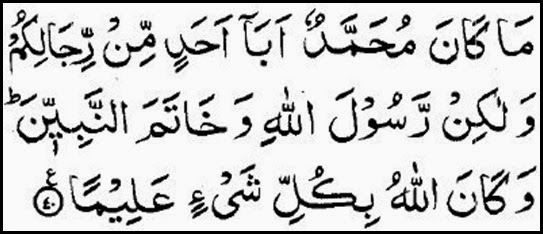 مَا كَانَ مُحَمَّدٌ اَبَآ اَحَدٍ مِّنْ رِّجَالِكُمْ
وَلٰكِنْ رَّسُوْلَ اللّٰهِ وَ خَاتَمَ النَّبِيّٖنَ ؕ
وَ كَانَ اللّٰهُ بِكُلِّ شَيْءٍ عَلِيْمًا ﴿۴۰﴾ ع